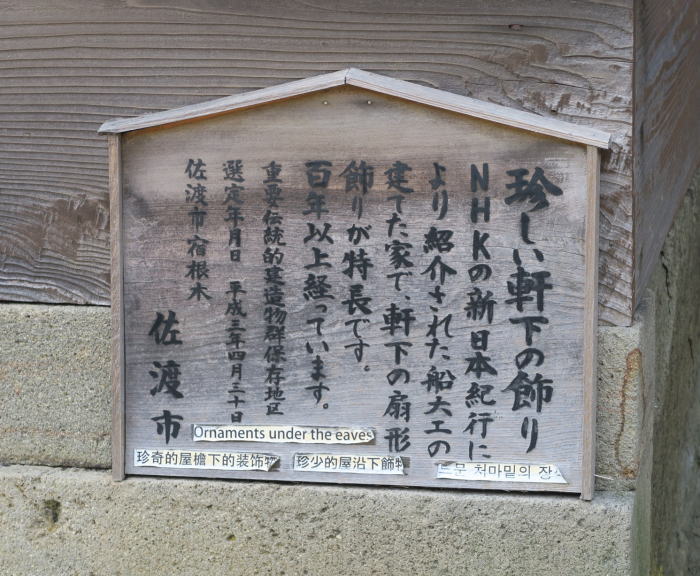 珍しい軒下の飾り
NHKの新日本紀行に
より紹介された船大工の
建てた家で、軒下の扇形
飾りが特長です。
百年以上経っています。
重要伝統的建造物群保存地区
選定年月日 平成三年四月三十日
佐渡市宿根木
佐渡市
Ornaments under the eaves
珍奇的屋檐下的装饰物
珍少的屋沿下飾物
드문 처마밑의 장식